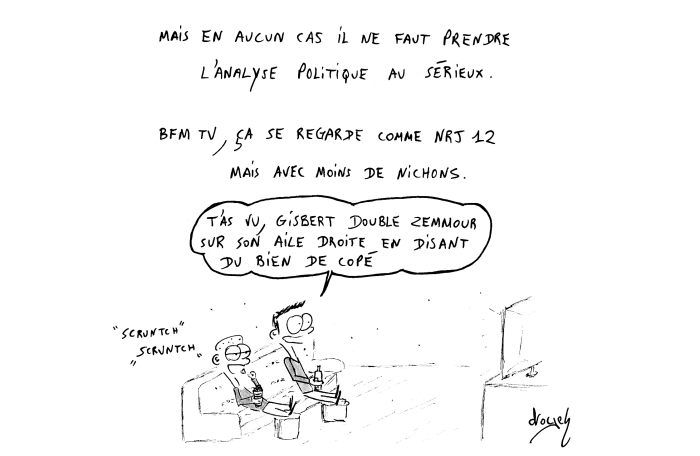 MAIS EN AUCUN CAS iL NE FAUT PRENDRE
L'ANALYSE POLITIQUE AU SÉRIEUX.
BFM TV, ÇA SE REGARDE COMME NRJ 12
MAIS AVEC MOINS DE NICHONS.
T'AS VU, GISBERT DOUBLE ZEMMOUR
SUR SON AILE DROITE EN DISANT
DU BIEN DE COPÉ
"SCRUNTCH"
"SCRUNTCH"